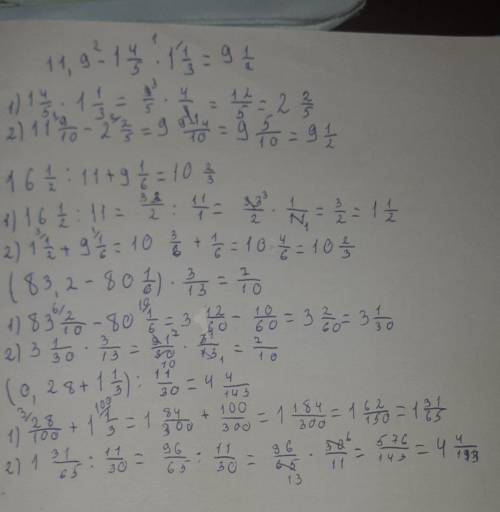 11,9 - 1 4/5 · 1 1/3 = 9 1/2
1) 1 4/5 · 1 1/3 = 9/5 · 4/3 = 12/5 = 2 2/5
2) 11 9/10 - 2 2/5 = 9 9-4/10 = 9 5/10 = 9 1/2
16 1/2 : 11 + 9 1/6 = 10 2/3
1) 16 1/2 : 11 = 33/2 : 11/1 = 33/2 · 1/11 = 3/2 = 1 1/2
2) 1 1/2 + 9 1/6 = 10 3/6 + 1/6 = 10 4/6 = 10 2/3
(83,2 - 80 1/6) · 3/13 = 7/10
1) 83 2/10 - 80 1/6 = 3 12/60 - 10/60 = 3 2/60 = 3 1/30
2) 3 1/30 · 3/13 = 91/30 · 3/13 = 7/10
(0,28 + 1 1/3) : 11/30 = 4 4/143
1) 28/100 + 1 1/3 = 1 84/300 + 100/300 = 1 184/300 = 1 62/150 = 1 31/65
2) 1 31/65 : 11/30 = 96/65 : 11/30 = 96/65 · 30/11 = 576/143 = 4 4/143